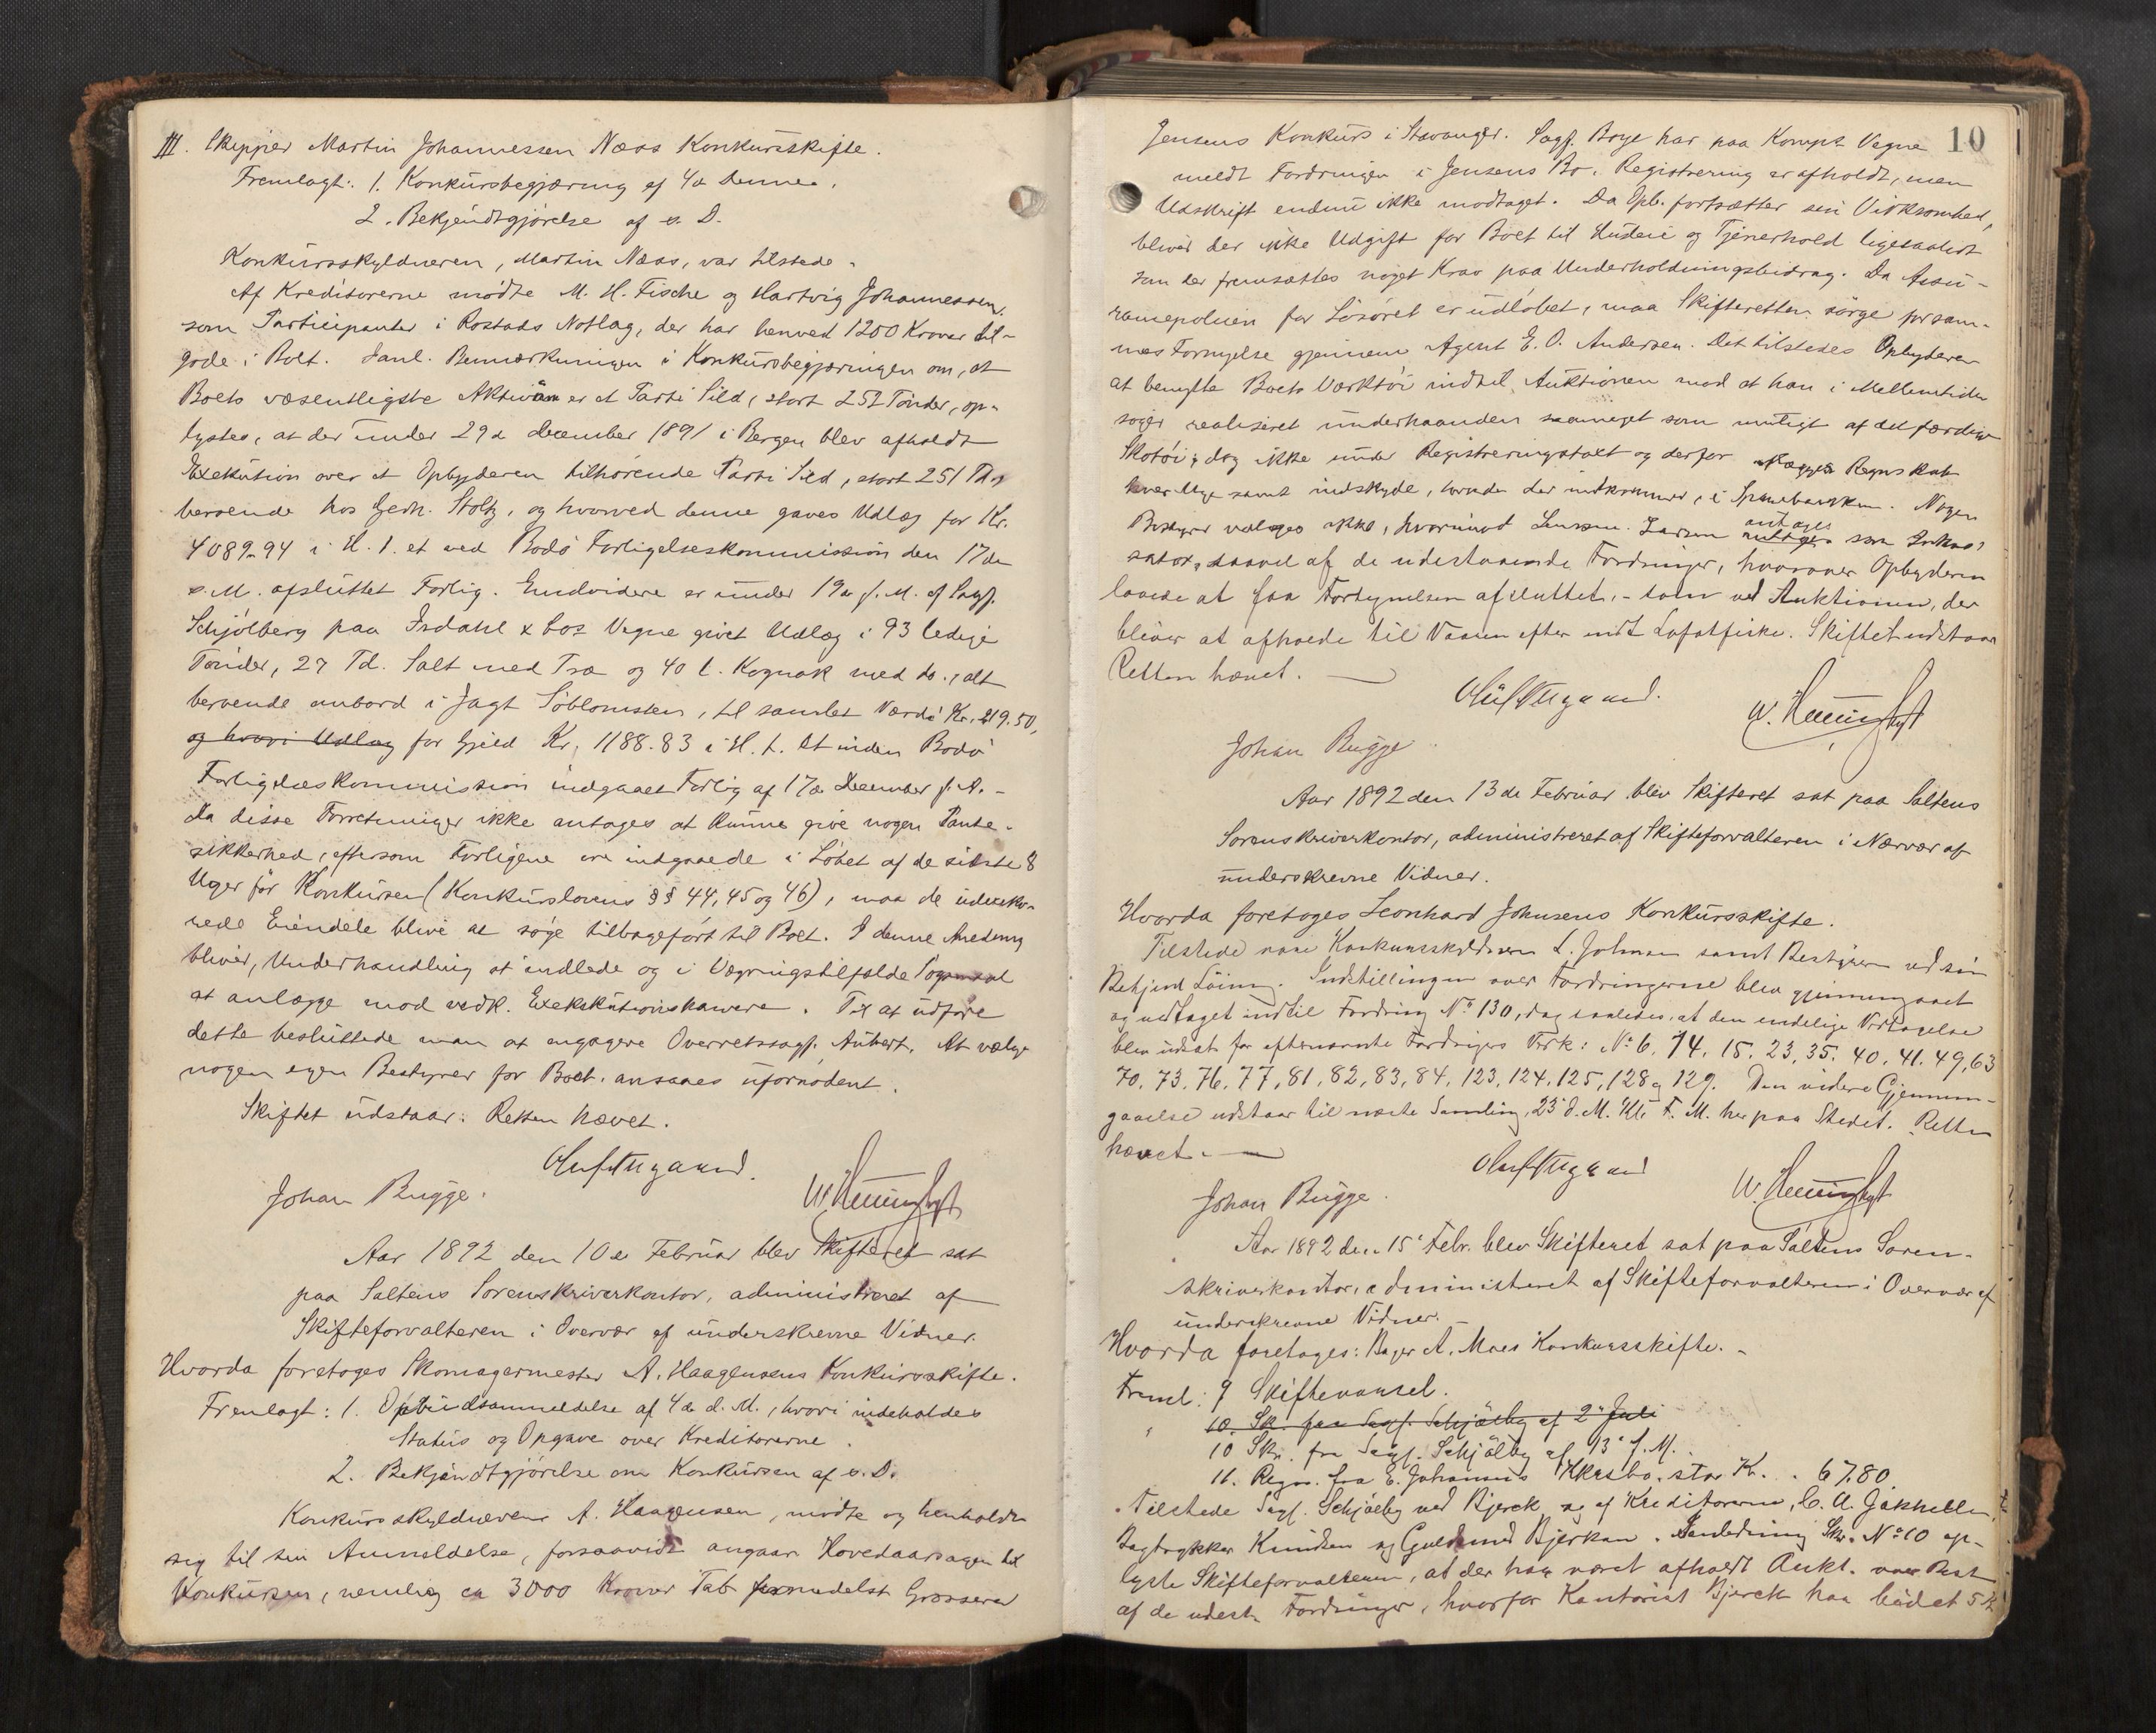 III. Skipper Martin Johannessen Næss Konkursskifte.
Fremlagt: 1. Konkursbegjæring af 4de Dennes.
2. Bekjendtgjørelse af s. D.
Konkursskyldneren, Martin Næss, var tilstede.
Af Kreditorerne mødte M. H. Fische og Hartvig Johannessen,
som Participanter i Rostads Notlag, der har henved 1200 Kroner til-
gode i Boet. Janl. Bemærkningen i Konkursbegjæringen om, at
Boets væsentligste Aktivum er et Parti Sild, stort 252 Tønder, op-
lystes, at der under 29de December 1891 i Bergen blev afholdt
Exekution over et Opbyderen tilhørende Parti Sild, stort 251 Tdr
beroende hos Gerh. Stoltz, og hvorved denne gaves Udlæg for Kr.
4089-94 i H. t. et ved Bodø Forligelseskommission den 17de
s. M. afsluttet Forlig. Endvidere er under 19de f. M. af Sagf.
Schjølberg paa Isdahl & Cos Vegne givet Udlæg i 93 ledige
Tønder, 27 Td. Salt med Træ og 40 l. Kognak med do., alt
beroende ombord i Jagt Søblomsten, til samlet Værdi Kr. 219.50,
og hvori Udlæg for Gjæld Kr. 1188.83 i H. t. et inden Bodø
Forligelseskommission indgaaet Forlig af 17de December f. A. -
Da disse Forretninger ikke antages at kunne give nogen Pante-
sikkerhed, eftersom Forligene ere indgaaede i Løbet af de sidste 8
Uger før Konkursen (Konkurslovens §§ 44, 45 og 46), maa de udexekve-
rede Eiendele blive at søge tilbageført til Boet. I denne Anledning
bliver, Underhandling at indlede og i Vægringstilfælde Søgsmaal
at anlægge mod vedk. Exekekutionshavere. Til at udføre
dette besluttede man at engagere Overretssagf. Aubert. At vælge
nogen egen Bestyrer for Boet. ansaaes ufornødent.
Skiftet udstaar. Retten hævet.
Johan Bugge.
Aar 1892 den 10de Februar blev Skifteret sat
paa Saltens Sorenskriverkontor, administreret af
Skifteforvalteren i Overvær af underskrevne Vidner.
Hvorda foretoges Skomagermester A. Haagensens Konkursskifte.
Fremlagt: 1. Opbudsanmeldelse af 4de d. M., hvori indeholdes
Status og Opgave over Kreditorerne.
2. Bekjendtgjørelse om Konkursen af s. D.
Konkursskyldneren A. Haagensen, mødte og henholdt
sig til sin Anmeldelse, forsaavidt angaar Hovedaarsagen til
Konkursen, nemlig ca 3000 Kroner Tab formedelst Grosserer
10
Jensens Konkurs i Stavanger. Sagf. Boye har paa Kompts Vegne
meldt Fordringen i Jensens Bo. Registrering er afholdt, men
Udskrift endnu ikke modtaget. Da Opb. fortsætter sin Virksomhed,
bliver der ikke Udgift for Boet til Husleie og Tjenerhold ligesaalidt
som der fremsættes noget Krav paa Underholdningsbidrag. Da Assu-
rancepolicen for Løsøret er udløbet, maa Skifteretten sørge for sam-
mes Fornyelse gjennem Agent E. O. Andersen. Det tilstedes Opbyderen
at benytte Boets Værktøi indtil Auktionen mod at han i Mellemtiden
søger realiseret underhaanden saameget som muligt af det færdige
Skotøi, dog ikke under Registreringstaxt og derfor aflægger Regnskab
hver Uge samt indskyde, hvad der indkommer, i Sparebanken. Nogen
Bestyrer vælges ikke, hvorimod Lensm. Larsen antages som Inkas-
sator, saavel af de udestaaende Fordringer, hvorover Opbyderen
lovede at faa Fortegnelsen afsluttet, - som ved Auktionen, der
bliver at afholde til Vaaren efter endt Lofotfiske. Skiftet udstaar
Retten hævet.
Johan Bugge
Aar 1892 den 13de Februar blev Skifteret sat paa Saltens
Sorenskriverkontor, administreret af Skifteforvalteren i Nærvær af
underskrevne Vidner.
Hvorda foretoges Leonhard Johnsens Konkursskifte.
Tilstede vare Konkursskyldneren L. Johnsen samt Bestyreren ved sin
Betjent Indstillingen over Fordringerne blev gjennemgaaet
og vedtaget indtil Fordring No 130, dog saaledes, at den endelige Vedtagelse
blev udsat for efternævnte Fordringers Vedk: No 6, 14, 15, 23, 35, 40, 41, 49, 63
70, 73, 76, 77, 81, 82, 83, 84, 123, 124, 125, 128 og 129. Den videre Gjennem-
gaaelse udstaar til næste Samling, 23de d. M. Kl. F. M. her paa Stedet. Retten
hævet.
Johan Bugge.
Aar 1892 den 15de Febr. blev Skifteret sat paa Saltens Soren-
skriverkontor, administreret af Skifteforvalteren i Overvær af
underskrevne Vidner.
Hvorda foretages: Bager A. Moes Konkursskifte. -
Freml: 9 Skiftevarsel.
10. Sk. fra Sagf. Schjølbg af 2de Juli
10 Skr. fra Sagf. Schjølbg af 13de f. M.
11. Regn. fra E. Johannes Kkrsbo. stor Kr. 67.80.
Tilstede Sagf. Schjølbg ved Bjerck og af Kreditorerne, C. A. Jakhelln,
Bogtrykker Knudsen og Guldsmed Bjerkan. I Anledning Skr. No 10 op-
lyste Skifteforvalteren, at der har været afholdt Aukt. over Rest
af de udest. Fordringer, hvorfor Kontorist Bjerck har budet 5 Kr